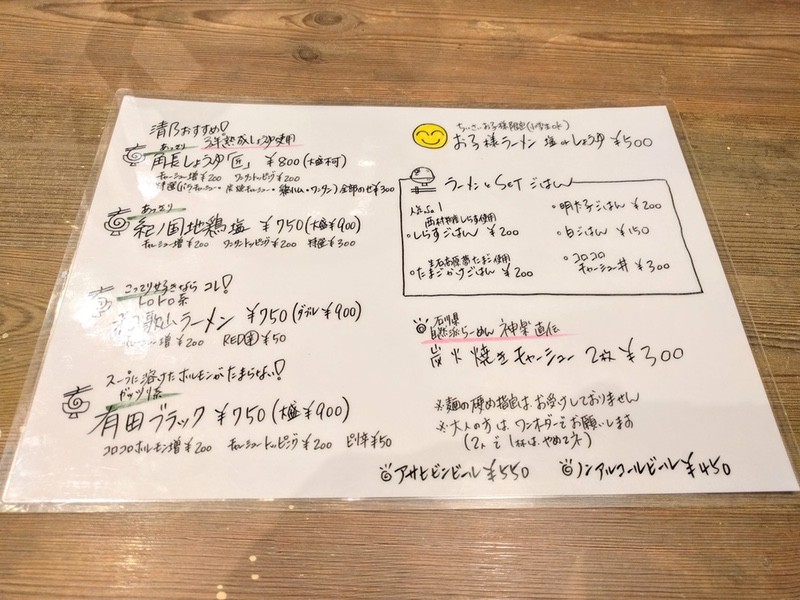 清乃おすすめ!
3年熟成しょうゆ使用
あっさり
角長しょうゆ「匠」 ¥800(大盛 )
チャーシュー増¥200 ワンタントッピング¥200
特選(バラチャーシュー・炭焼チャーシュー・鶏ハム・ワンタン)全部のせ¥300
あっさり
紀ノ国地鶏塩 ¥750(大盛¥900)
チャーシュー増¥200 ワンタントッピング¥200 特選¥300
こってり好きなら コレ!
トロトロ系
和歌山ラーメン ¥750(ダブル¥900)
チャーシュー増¥200 RED ¥50
スープに溶けたホルモンがたまらない!
ガッツリ系
有田ブラック ¥750(大盛¥900)
コロコロホルモン増¥200 チャーシュートッピング¥200 ピリ辛¥50
ちいさいお子様限定(小学生ok)
お子様ラーメン 塩orしょうゆ ¥500
ラーメンとSet ごはん
人気No.1
西村物産しらす使用
・しらすごはん ¥200
生石高原の たまご使用
・たまごかけごはん ¥200
・明太子ごはん ¥200
・白ごはん ¥150
・コロコロ
チャーシュー丼 ¥300
石川県
自然派らーめん 神楽 直伝
炭火焼きチャーシュー 2枚 ¥300
※麺の硬め指定は お受けしておりません
※大人の方は ワンオーダーで お願いします
(2人で1杯は、やめてネ)
アサヒビンビール¥550
ノンアルコールビール¥450